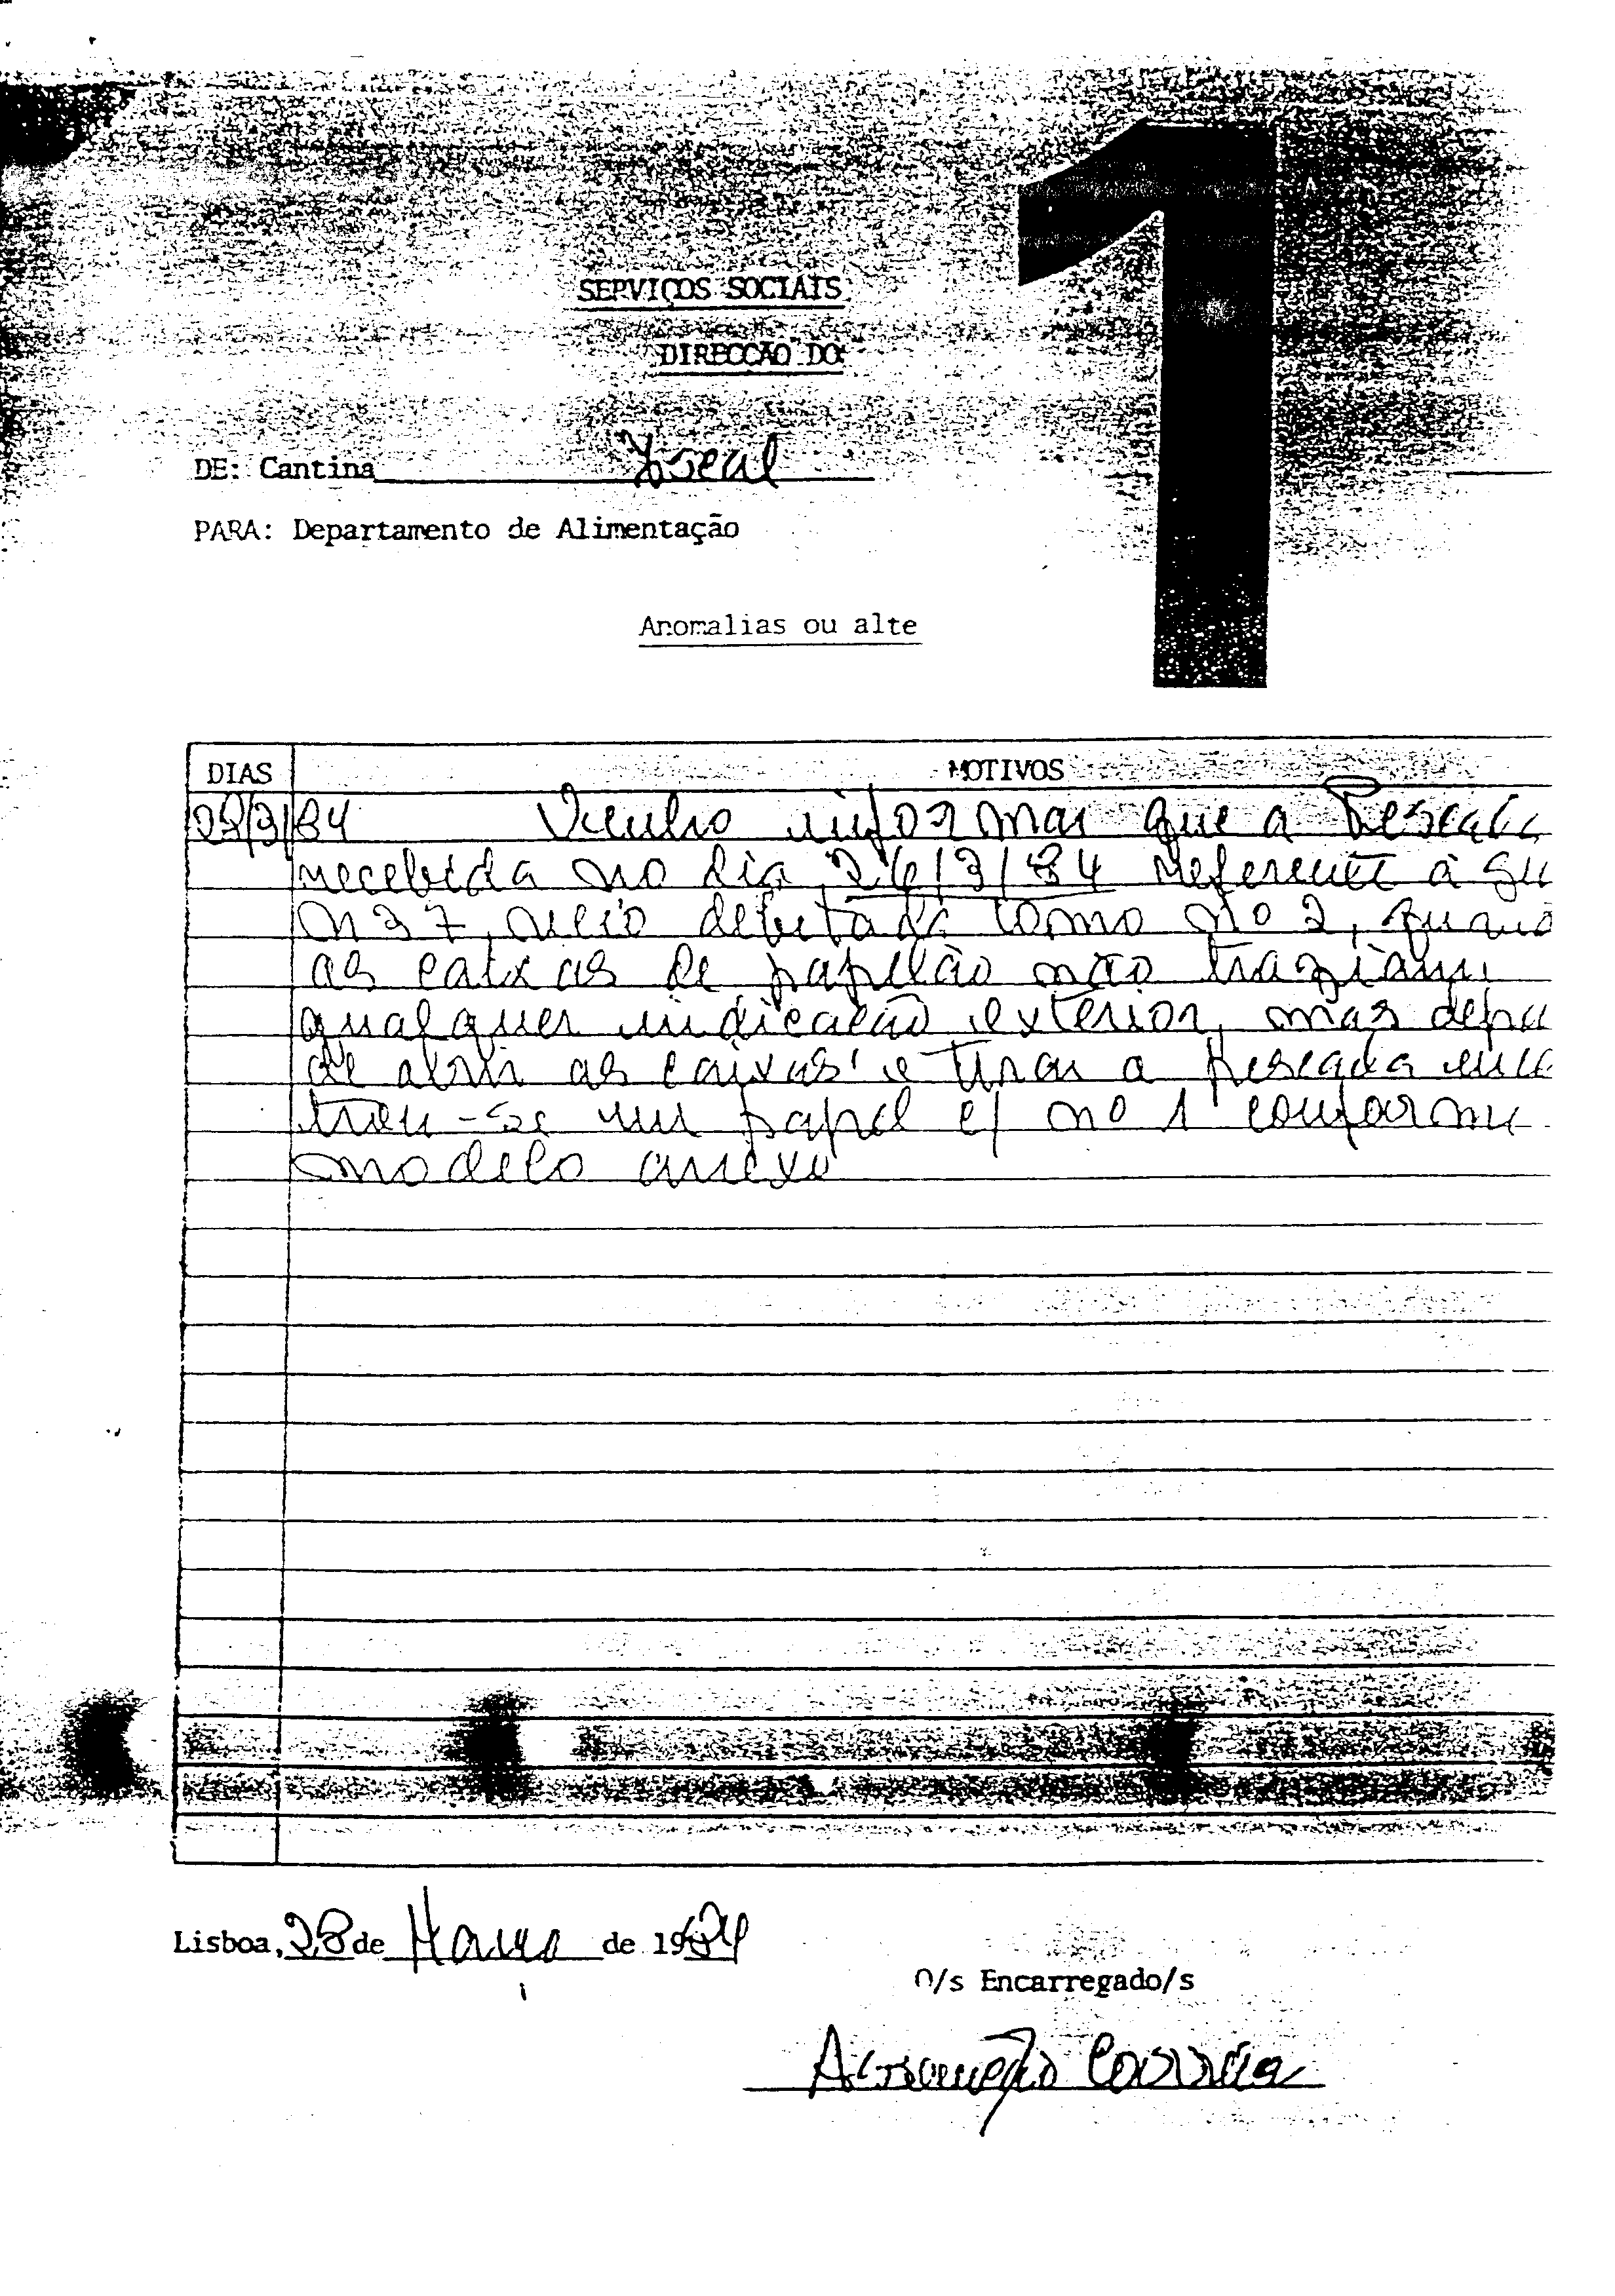 1
SERVIÇOS SOCIAIS
DIRECCÃO DO
DE: Cantina
PARA: Departamento de Alimentação
Anomalias ou alte
DIAS MOTIVOS
28/3/84 Venho informar que a Pescada
recebida no dia 26/3/84 referente à gu
nº 37, veio debitada como nº 2, quand
as caixas de papelão não traziam
qualquer indicação exterior, mas depo
de abrir as caixas e tirar a pescada enco
trou-se um papel c/ nº 1 conforme
modelo anexo
Lisboa, 28 de Março de 1984
O/s Encarregado/s
Assunção Correia